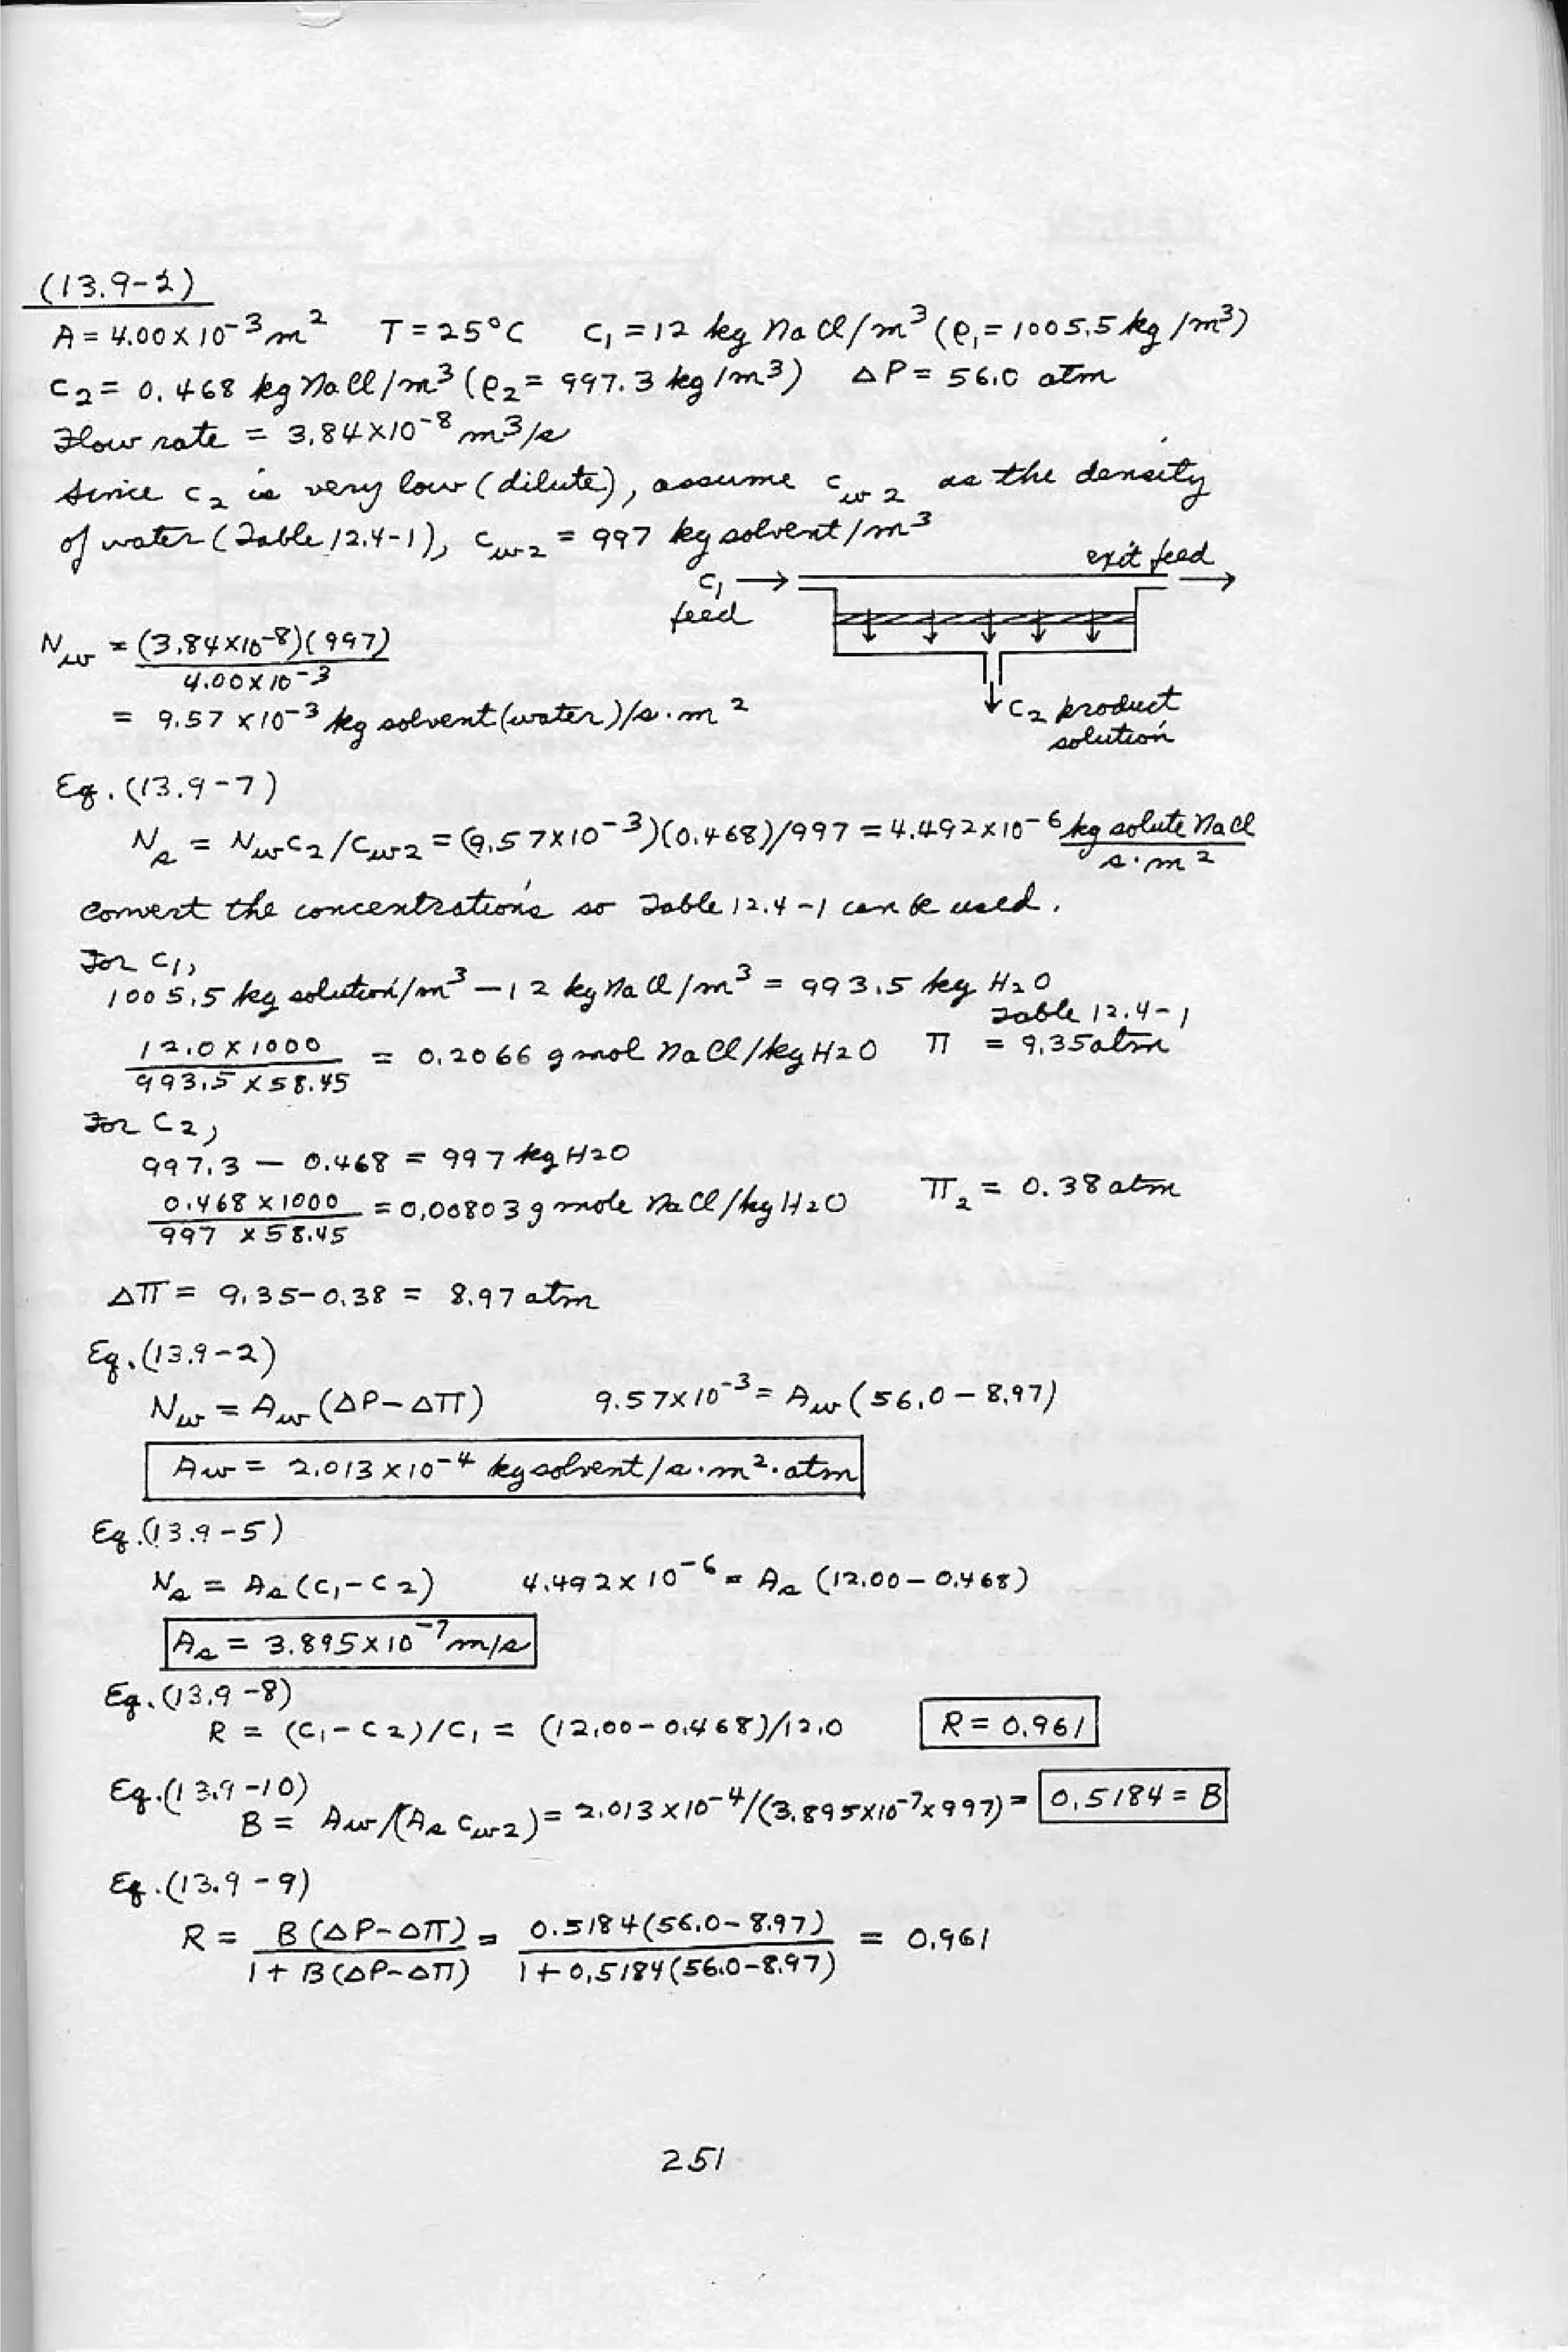 (13.9-2)
A = 4.00 x 10⁻³ m² T = 25°C c₁ = 12 kg NaCl/m³ (ρ₁ = 1005.5 kg/m³)
c₂ = 0.468 kg NaCl/m³ (ρ₂ = 997.3 kg/m³) ΔP = 56.0 atm
Flow rate = 3.84 x 10⁻⁸ m³/s
Since c₂ is very low (dilute), assume c_w2 as the density
of water (Table 12.4-1), c_w2 = 997 kg solvent/m³
exit feed
c₁ →
feed
N_w = (3.84 x 10⁻⁸)(997)
4.00 x 10⁻³
= 9.57 x 10⁻³ kg solvent (water)/s·m²
c₂ product
solution
Eq. (13.9-7)
N_s = N_w c₂/c_w2 = (9.57 x 10⁻³)(0.468)/997 = 4.492 x 10⁻⁶ kg solute NaCl
s·m²
Convert the concentrations so Table 12.4-1 can be used.
For c₁,
1005.5 kg solution/m³ - 12 kg NaCl/m³ = 993.5 kg H₂O
Table 12.4-1
12.0 x 1000 = 0.2066 g mol NaCl/kg H₂O π = 9.35 atm
993.5 x 58.45
For c₂,
997.3 - 0.468 = 997 kg H₂O
0.468 x 1000 = 0.00803 g mole NaCl/kg H₂O π₂ = 0.38 atm
997 x 58.45
Δπ = 9.35 - 0.38 = 8.97 atm
Eq. (13.9-2)
N_w = A_w (ΔP - Δπ) 9.57 x 10⁻³ = A_w (56.0 - 8.97)
A_w = 2.013 x 10⁻⁴ kg solvent/s·m²·atm
Eq. (13.9-5)
N_s = A_s (c₁ - c₂) 4.492 x 10⁻⁶ = A_s (12.00 - 0.468)
A_s = 3.895 x 10⁻⁷ m/s
Eq. (13.9-8)
R = (c₁ - c₂)/c₁ = (12.00 - 0.468)/12.0 R = 0.961
Eq. (13.9-10)
B = A_w/(A_s c_w2) = 2.013 x 10⁻⁴/(3.895 x 10⁻⁷ x 997) = 0.5184 = B
Eq. (13.9-9)
R = B(ΔP - Δπ) = 0.5184(56.0 - 8.97) = 0.961
1 + B(ΔP - Δπ) 1 + 0.5184(56.0 - 8.97)
251